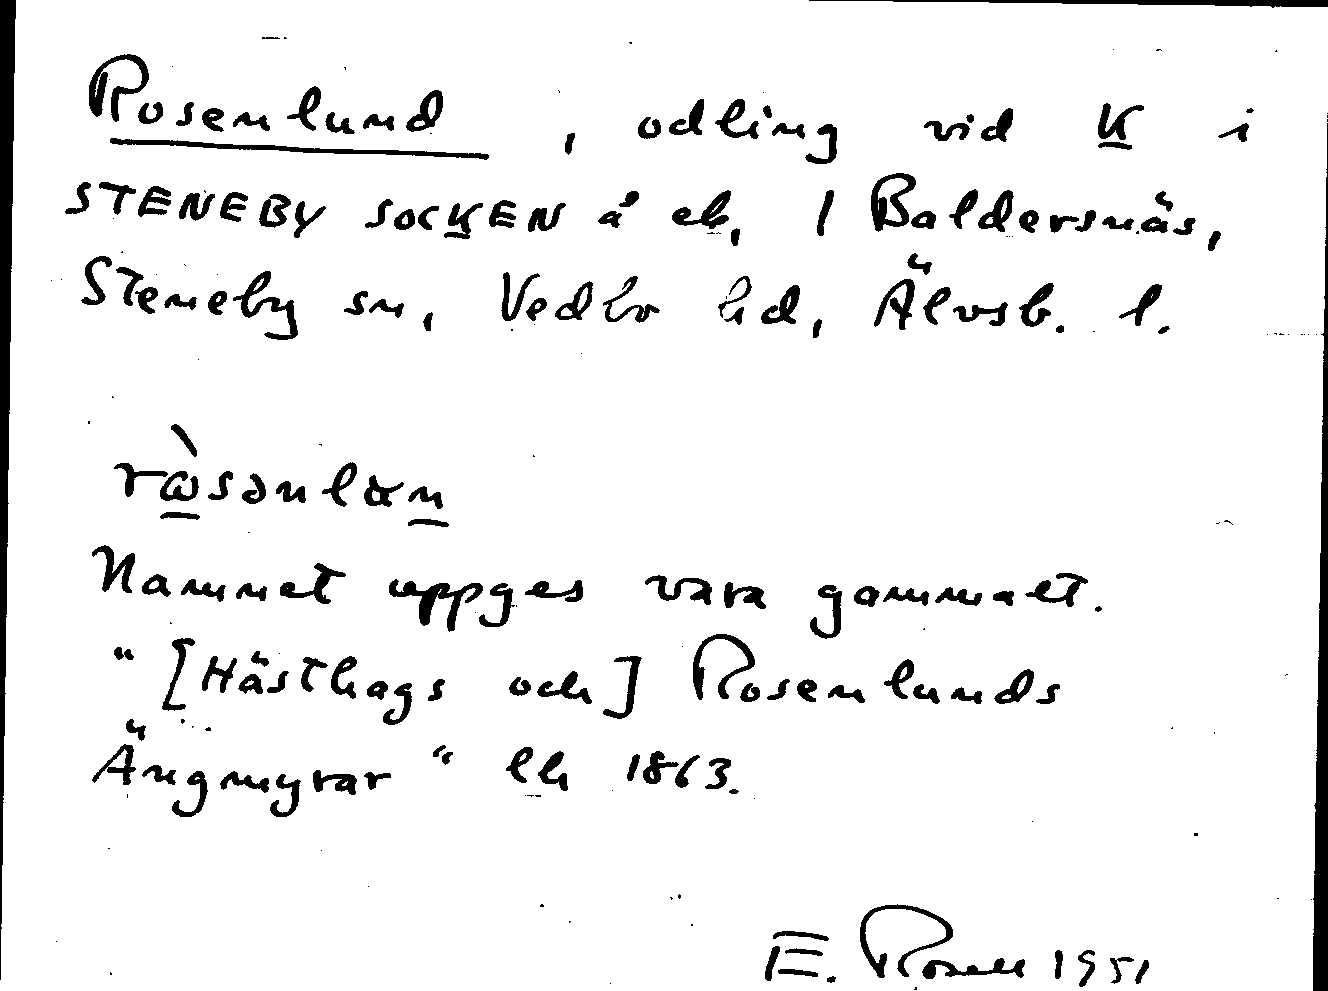 Rosenlund, odling vid K i
STENEBY SOCKEN å eb, 1 Baldersnäs,
Steneby sn, Vedbo hd, Älvsb. l.
rὼsənlαn
Namnet uppges vara gammalt.
"[Hästhags och] Rosenlunds
Ängmyrar" lh 1863.
E. Rosell 1951